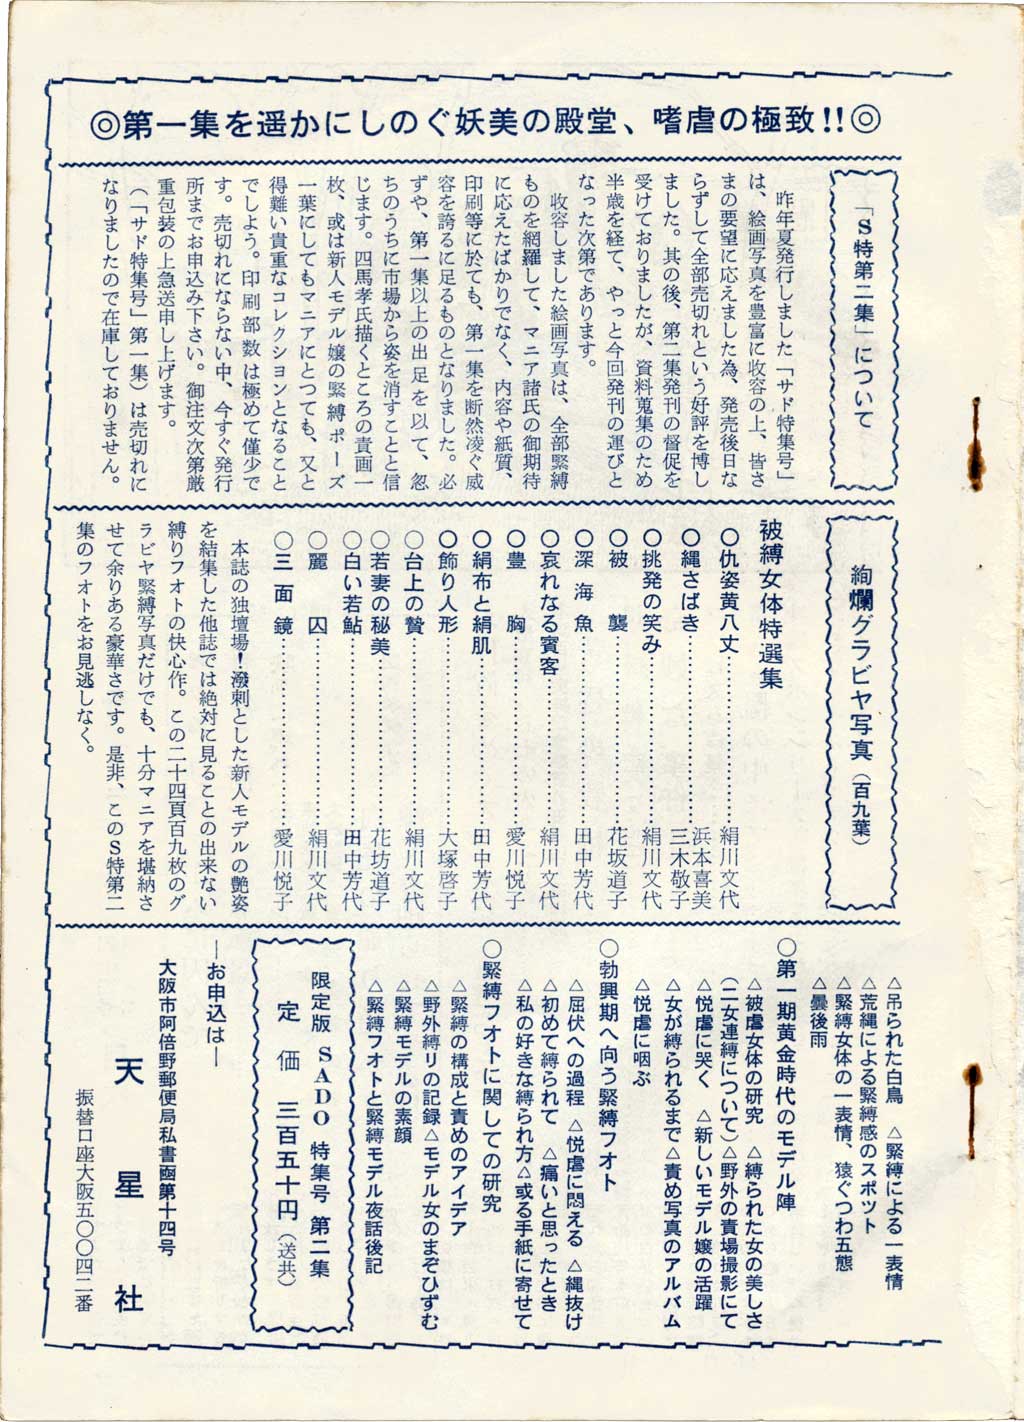 ◎第一集を遥かにしのぐ妖美の殿堂、嗜虐の極致!!◎
「S特第二集」について
昨年夏発行しました「サド特集号」
は、絵画写真を豊富に収容の上、皆さ
まの要望に応えました為、発売後日な
らずして全部売切れという好評を博し
ました。其の後、第二集発刊の督促を
受けておりましたが、資料蒐集のため
半歳を経て、やっと今回発刊の運びと
なった次第であります。
収容しました絵画写真は、全部緊縛
ものを網羅して、マニア諸氏の御期待
に応えたばかりでなく、内容や紙質、
印刷等に於ても、第一集を断然凌ぐ威
容を誇るに足るものとなりました。必
ずや、第一集以上の出足を以て、忽
ちのうちに市場から姿を消すことと信
じます。四馬孝氏描くところの責画一
枚、或は新人モデル嬢の緊縛ポーズ
一葉にしてもマニアにとつても、又と
得難い貴重なコレクションとなること
でしよう。印刷部数は極めて僅少で
す。売切れにならない中、今すぐ発行
所までお申込み下さい。御注文次第厳
重包装の上急送申し上げます。
(「サド特集号」第一集)は売切れに
なりましたので在庫しておりません。
絢爛グラビヤ写真(百九葉)
被縛女体特選集
○仇姿黄八丈…………絹川文代
○縄さばき…………浜本喜美
三木敬子
○挑発の笑み…………絹川文代
○被襲…………花坂道子
○深海魚…………田中芳代
○哀れなる賓客…………絹川文代
○豊胸…………愛川悦子
○絹布と絹肌…………田中芳代
○飾り人形…………大塚啓子
○台上の贄…………絹川文代
○若妻の秘美…………花坊道子
○白い若鮎…………田中芳代
○麗囚…………絹川文代
○三面鏡…………愛川悦子
本誌の独壇場!潑刺とした新人モデルの艶姿
を結集した他誌では絶対に見ることの出来ない
縛りフオトの快心作。この二十四頁百九枚のグ
ラビヤ緊縛写真だけでも、十分マニアを堪納さ
せて余りある豪華さです。是非、このS特第二
集のフオトをお見逃しなく。
△吊られた白鳥 △緊縛による一表情
△荒縄による緊縛感のスポット
△緊縛女体の一表情、猿ぐつわ五態
△曇後雨
○第一期黄金時代のモデル陣
△被虐女体の研究 △縛られた女の美しさ
(二女連縛について)△野外の責場撮影にて
△悦虐に哭く △新しいモデル嬢の活躍
△女が縛られるまで△責め写真のアルバム
△悦虐に咽ぶ
○勃興期へ向う緊縛フオト
△屈伏への過程 △悦虐に悶える △縄抜け
△初めて縛られて △痛いと思ったとき
△私の好きな縛られ方△或る手紙に寄せて
○緊縛フオトに関しての研究
△緊縛の構成と責めのアイデア
△野外縛リの記録△モデル女のまぞひずむ
△緊縛モデルの素顔
△緊縛フオトと緊縛モデル夜話後記
限定版 SADO 特集号 第二集
定価 三百五十円(送共)
―お申込は―
大阪市阿倍野郵便局私書函第十四号
天星社
振替口座大阪五〇〇四二番